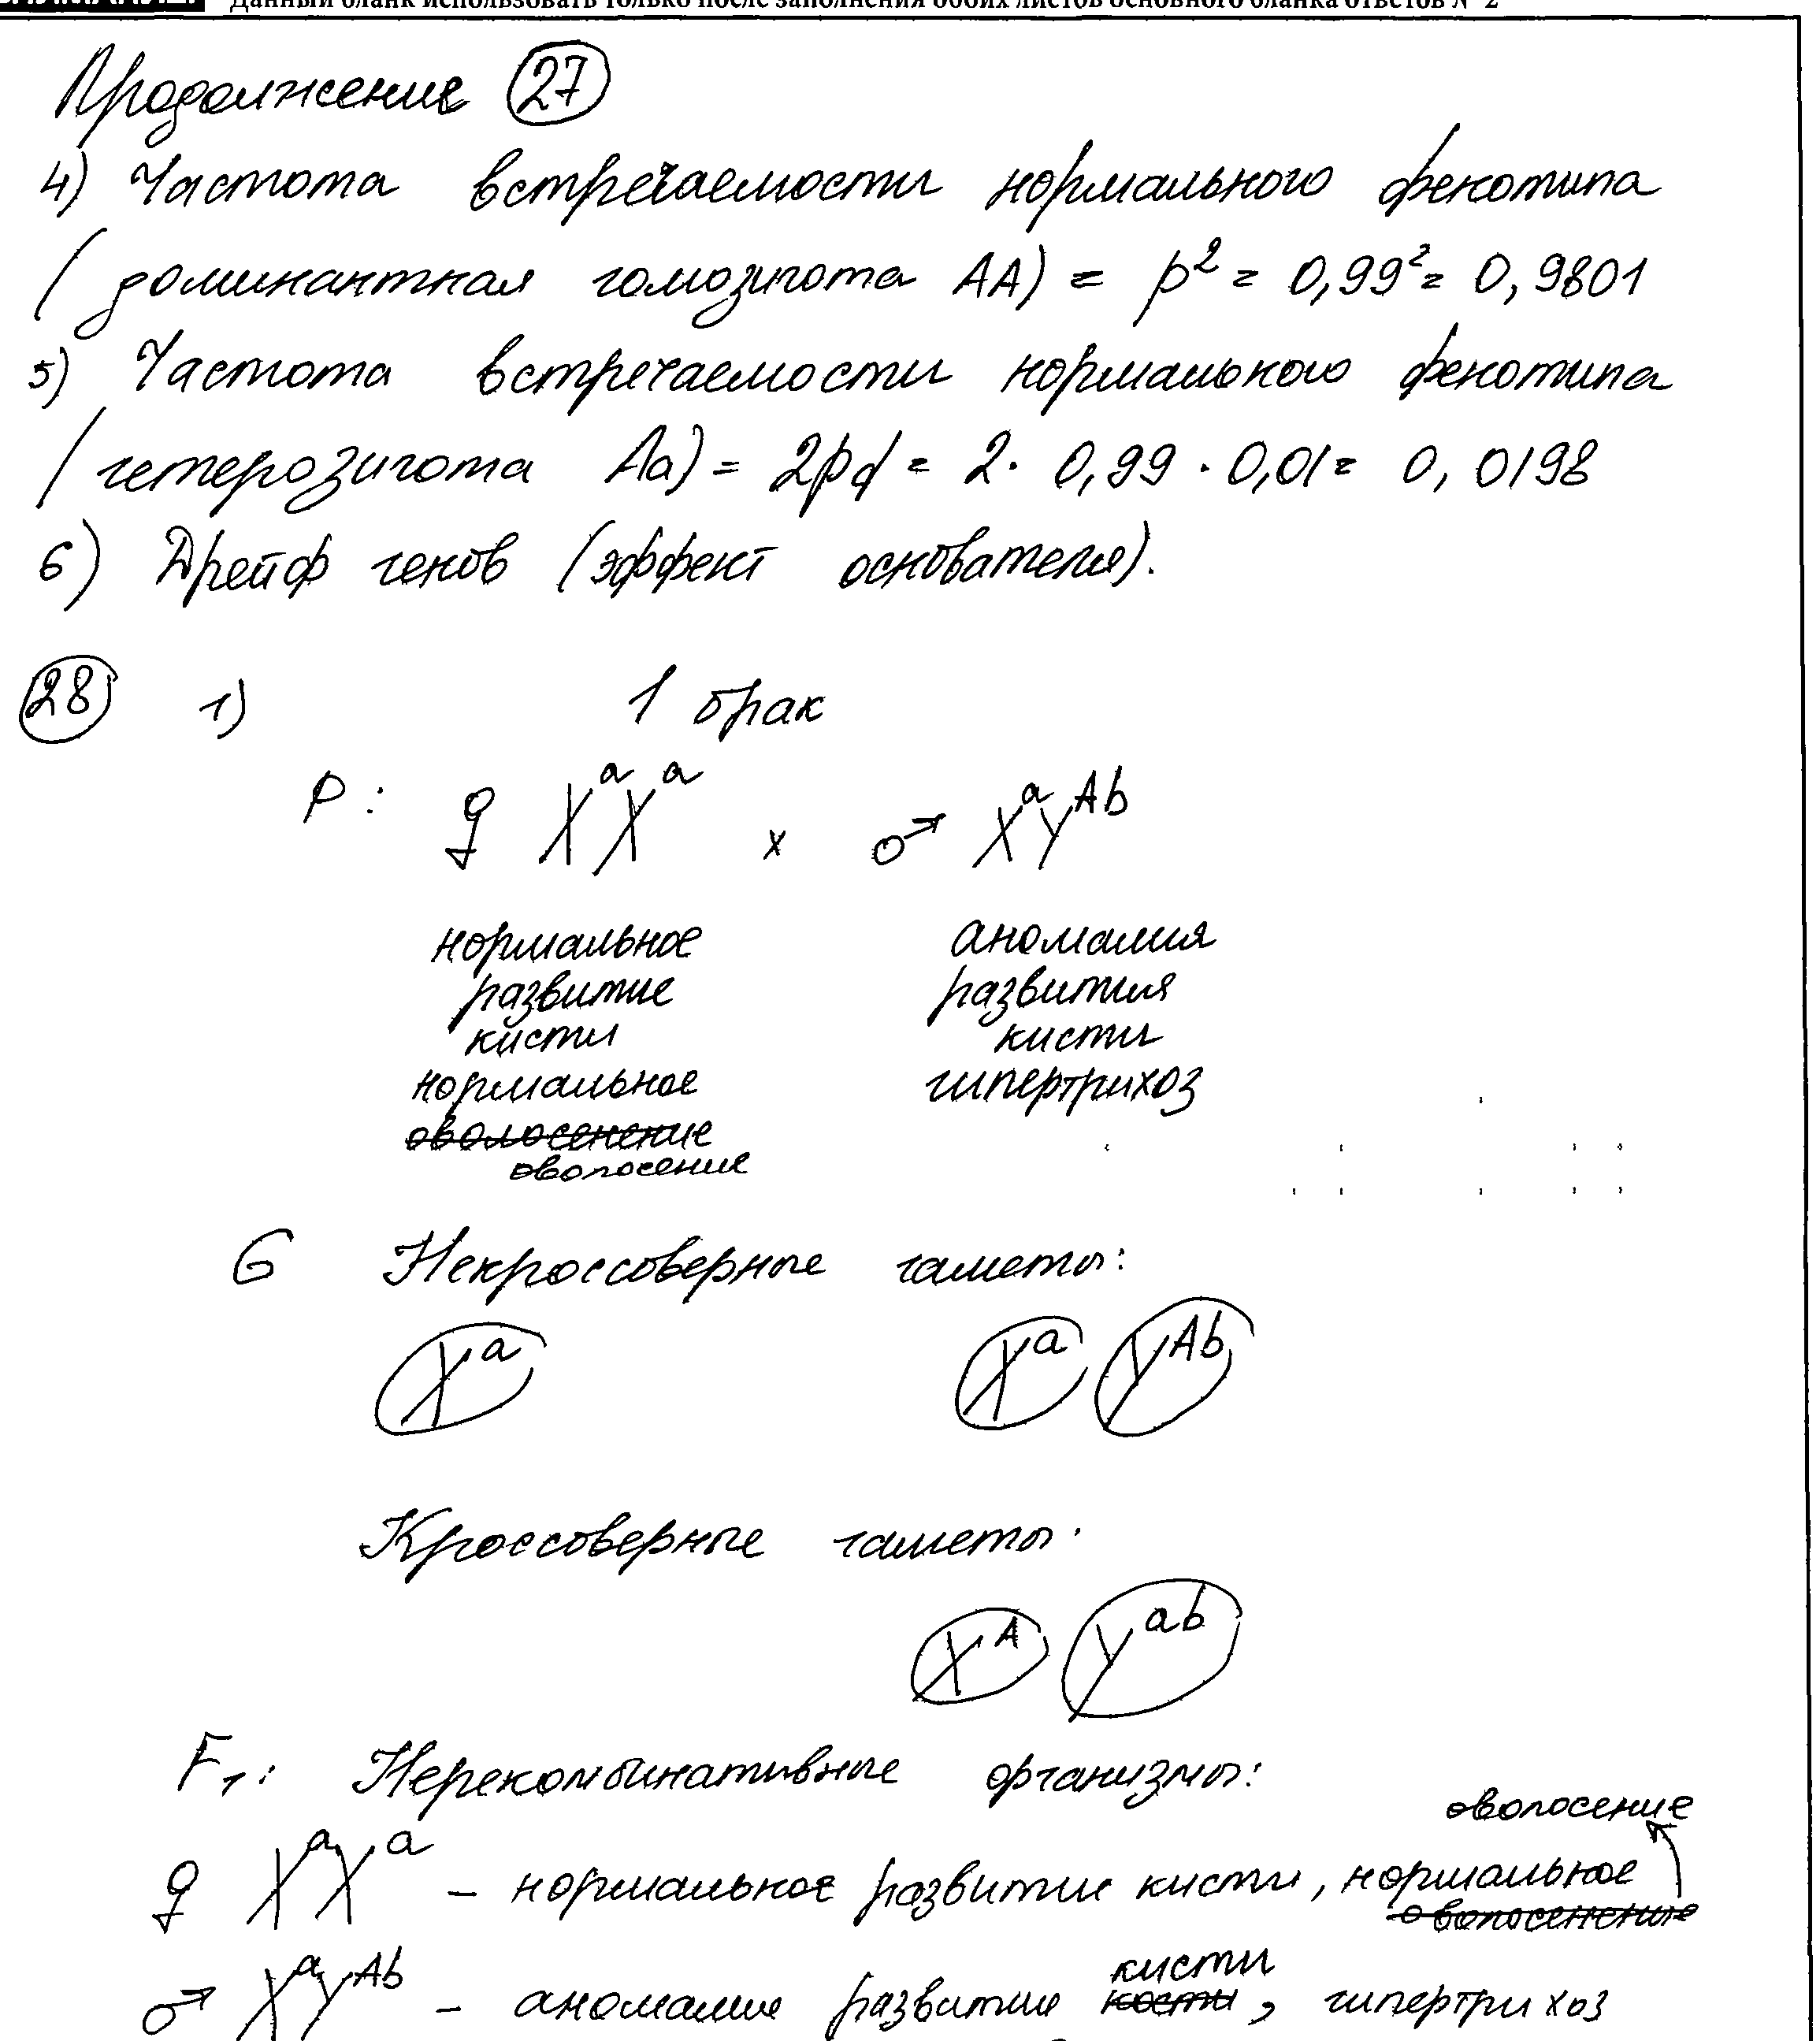 Данный бланк использовать только после заполнения обоих листов основного бланка ответов № 2
Продолжение 27
4) Частота встречаемости нормального фенотипа
(доминантная гомозигота AA) = p² = 0,99² = 0,9801
5) Частота встречаемости нормального фенотипа
(гетерозигота Aa) = 2pq = 2 · 0,99 · 0,01 = 0,0198
6) Дрейф генов (эффект основателя).
28 1) 1 брак
P: ♀ XᵃXᵃ x ♂ XᵃYᴬᵇ
нормальное аномалия
развитие развития
кисти кисти
нормальное гипертрихоз
оволосенение
оволосение
G Некроссоверные гаметы:
Xᵃ Xᵃ Yᴬᵇ
Кроссоверные гаметы:
Xᴬ Yᵃᵇ
F₁: Нерекомбинативные организмы:
оволосение
♀ XᵃXᵃ – нормальное развитие кисти, нормальное
оволосенение
кисти
♂ XᵃYᴬᵇ – аномалие развитие кости, гипертрихоз